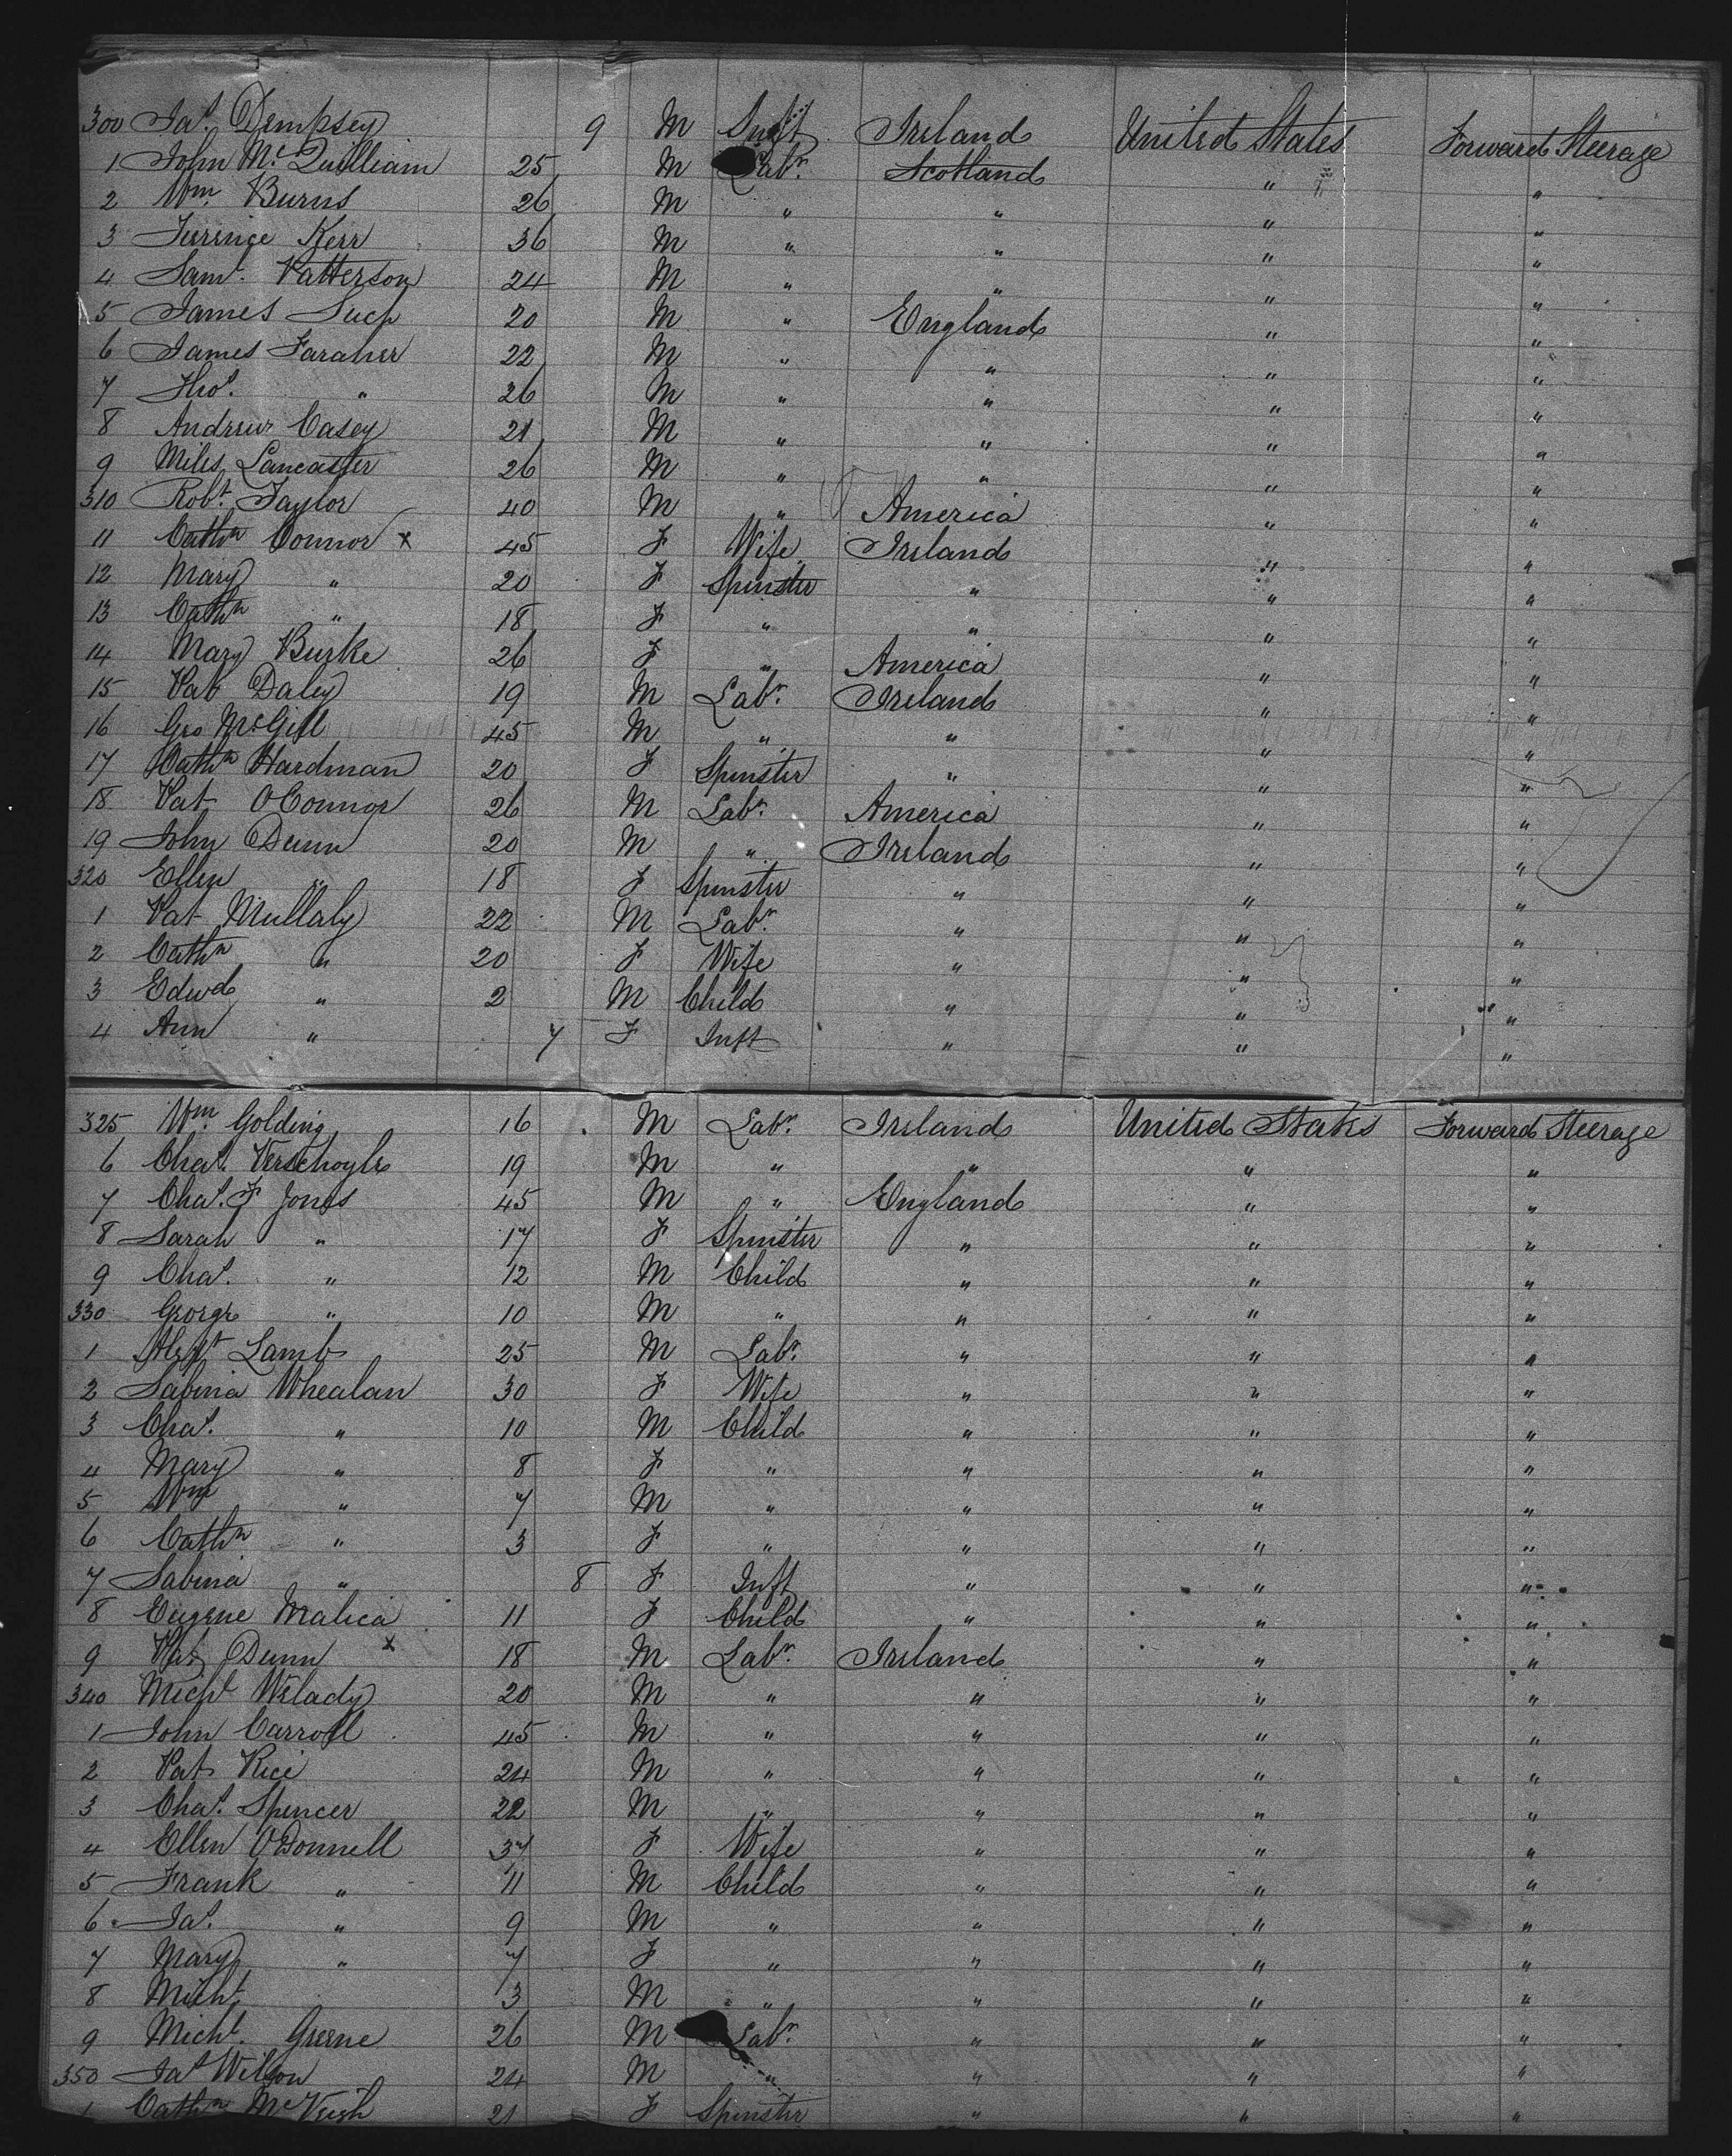 300 Jas. Dempsey 9 M Inft Ireland United States Forward Steerage
1 John McQuilliam 25 M Labr. Scotland " "
2 Wm. Burns 26 M " " " "
3 Terrence Kerr 36 M " " " "
4 Saml. Patterson 24 M " " " "
5 James Such 20 M " England " "
6 James Faraher 22 M " " " "
7 Thos. " 26 M " " " "
8 Andrew Casey 21 M " " " "
9 Miles Lancaster 26 M " " " "
310 Robt. Taylor 40 M " America " "
11 Cathn Connor x 45 F Wife Ireland " "
12 Mary " 20 F Spinster " " "
13 Cathn " 18 F " " " "
14 Mary Burke 26 F " America " "
15 Pat Daley 19 M Labr. Ireland " "
16 Geo McGill 45 M " " " "
17 Cathn Hardman 20 F Spinster " " "
18 Pat O'Connor 26 M Labr. America " "
19 John Dunn 20 M " Ireland " "
320 Ellen " 18 F Spinster " " "
1 Pat Mullaly 22 M Labr. " " "
2 Cathn " 20 F Wife " " "
3 Edwd " 2 M Child " " "
4 Ann " 7 F Inft " " "
325 Wm. Golding 16 M Labr. Ireland United States Forward Steerage
6 Chas. Verschoyle 19 M " " " "
7 Chas. F Jones 45 M " England " "
8 Sarah " 17 F Spinster " " "
9 Chas. " 12 M Child " " "
330 George " 10 M " " " "
1 Lamb 25 M Labr. " " "
2 Sabina Whealan 30 F Wife " " "
3 Chas. " 10 M Child " " "
4 Mary " 8 F " " " "
5 Wm " 7 M " " " "
6 Cathn " 3 F " " " "
7 Sabina " 8 F Inft " " "
8 Eugene Malica 11 F Child " " "
9 Pat Dunn x 18 M Labr. Ireland " "
340 Michl Welady 20 M " " " "
1 John Carroll 45 M " " " "
2 Pat Rice 24 M " " " "
3 Chas. Spencer 22 M " " " "
4 Ellen O'Donnell 37 F Wife " " "
5 Frank " 11 M Child " " "
6 Jas. " 9 M " " " "
7 Mary " 7 F " " " "
8 Michl 3 M " " " "
9 Michl. Greene 26 M Labr. " " "
350 Jas Wilson 24 M " " " "
1 Cathn McVeigh 21 F Spinster " " "